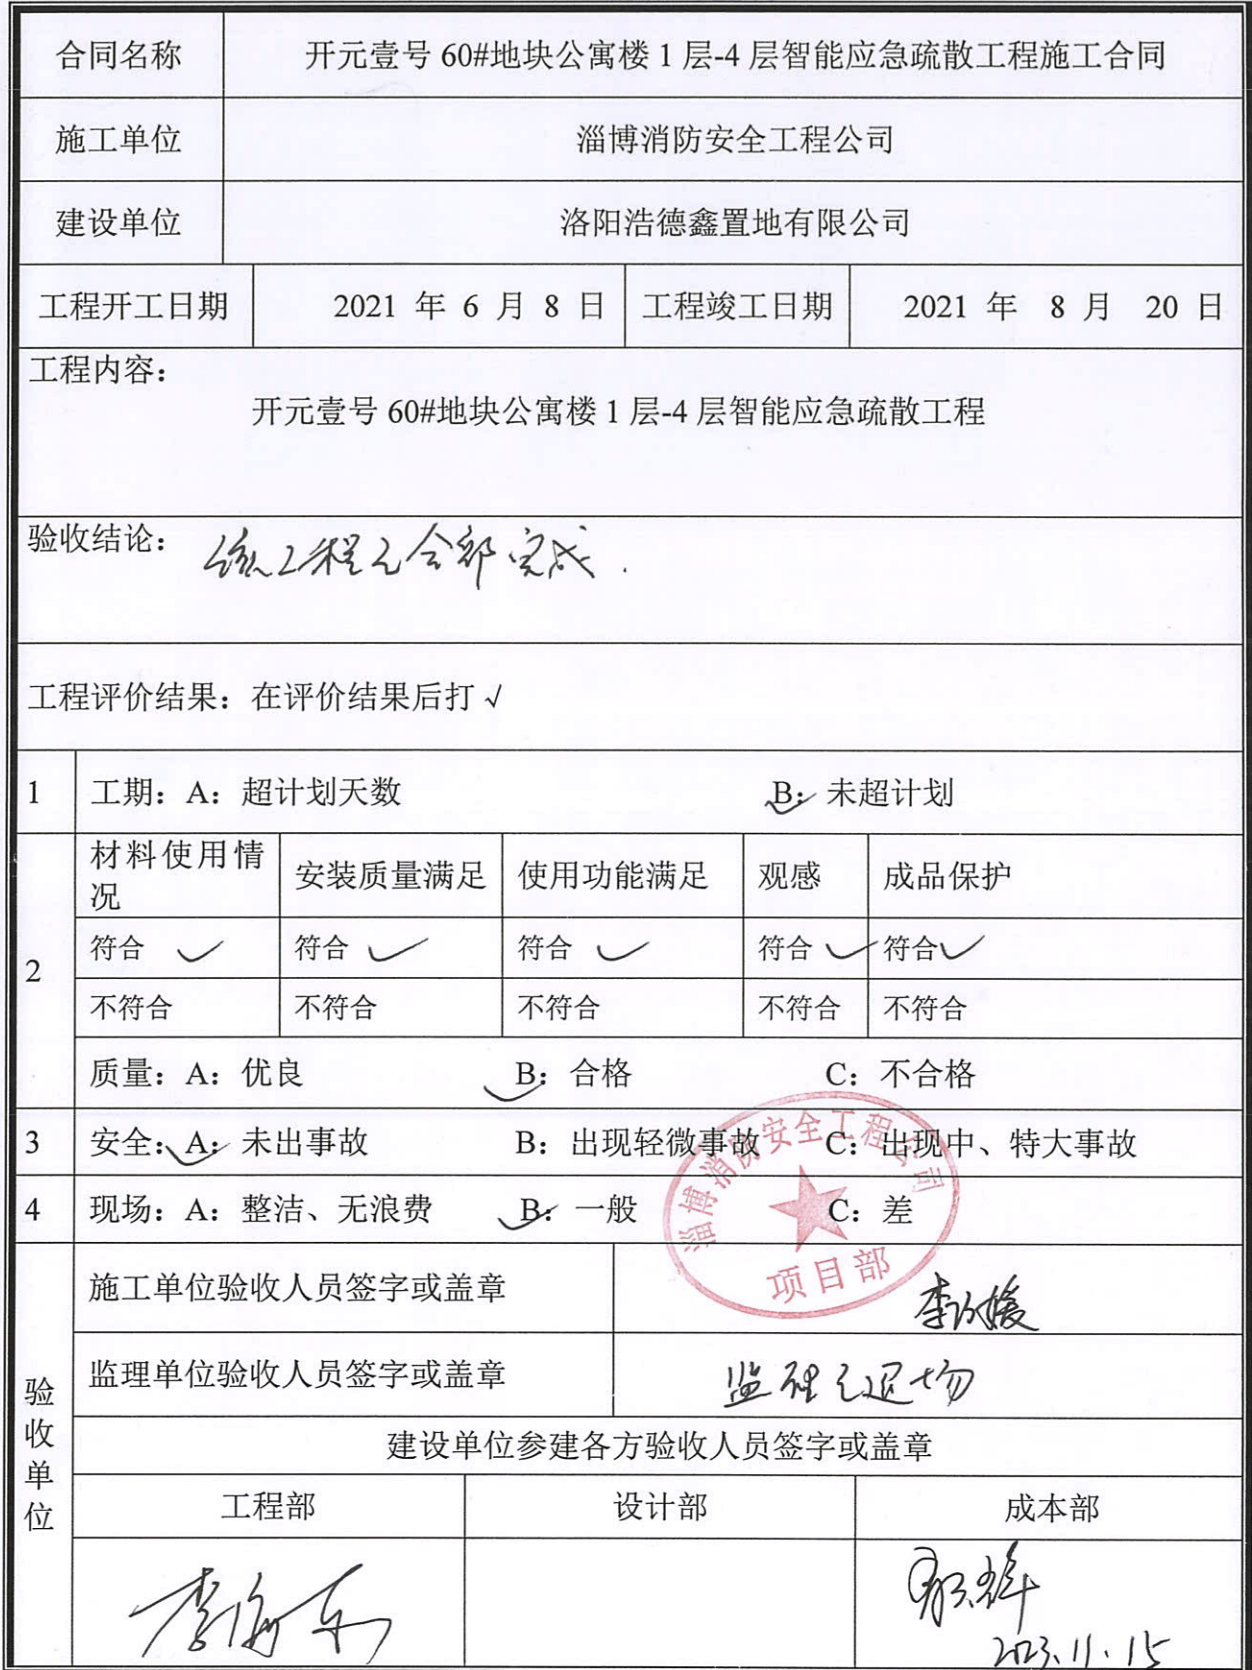 合同名称 开元壹号 60#地块公寓楼 1 层-4 层智能应急疏散工程施工合同
施工单位 淄博消防安全工程公司
建设单位 洛阳浩德鑫置地有限公司
工程开工日期 2021 年 6 月 8 日 工程竣工日期 2021 年 8 月 20 日
工程内容：
开元壹号 60#地块公寓楼 1 层-4 层智能应急疏散工程
验收结论： 该工程已全部完成.
工程评价结果：在评价结果后打 √
1 工期：A：超计划天数 B：✓ 未超计划
2 材料使用情况 安装质量满足 使用功能满足 观感 成品保护
符合 ✓ 符合 ✓ 符合 ✓ 符合 ✓ 符合 ✓
不符合 不符合 不符合 不符合 不符合
质量：A：优良 ✓ B：合格 C：不合格
3 安全：✓ A：未出事故 B：出现轻微事故 C：出现中、特大事故
4 现场：A：整洁、无浪费 ✓ B：一般 C：差
淄博消防安全工程公司
项目部
验收单位
施工单位验收人员签字或盖章
监理单位验收人员签字或盖章 监理已退场
建设单位参建各方验收人员签字或盖章
工程部 设计部 成本部
李海东
2023.11.15